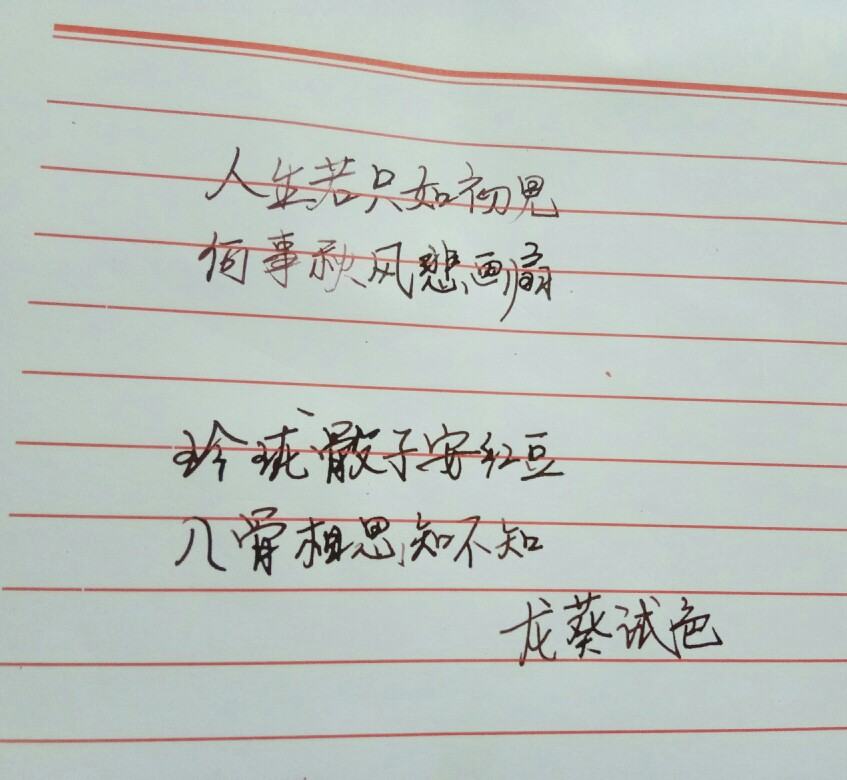 人生若只如初见
何事秋风悲画扇
玲珑骰子安红豆
入骨相思知不知
龙葵试色